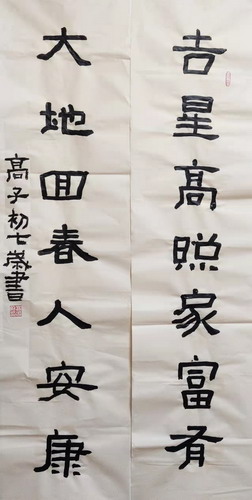 吉星髙照家富有
大地回春人安康
髙子初七崇書